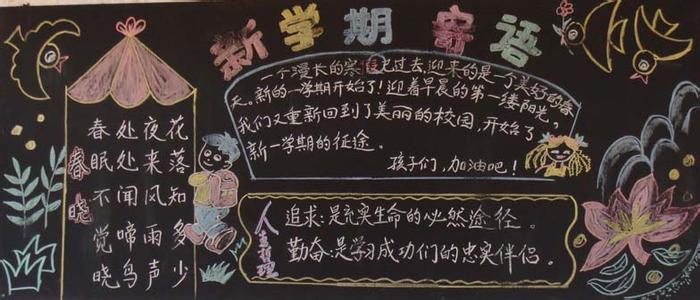 新学期寄语
春晓
春眠不觉晓
处处闻啼鸟
夜来风雨声
花落知多少
一个漫长的寒假已过去,迎来的是一个美好的春
天。新的一学期开始了!迎着早晨的第一缕阳光。
我们又重新回到了美丽的校园,开始了
新一学期的征途。
孩子们,加油吧!
人生哲理
追求:是充实生命的必然途径。
勤奋:是学习成功们的忠实伴侣。